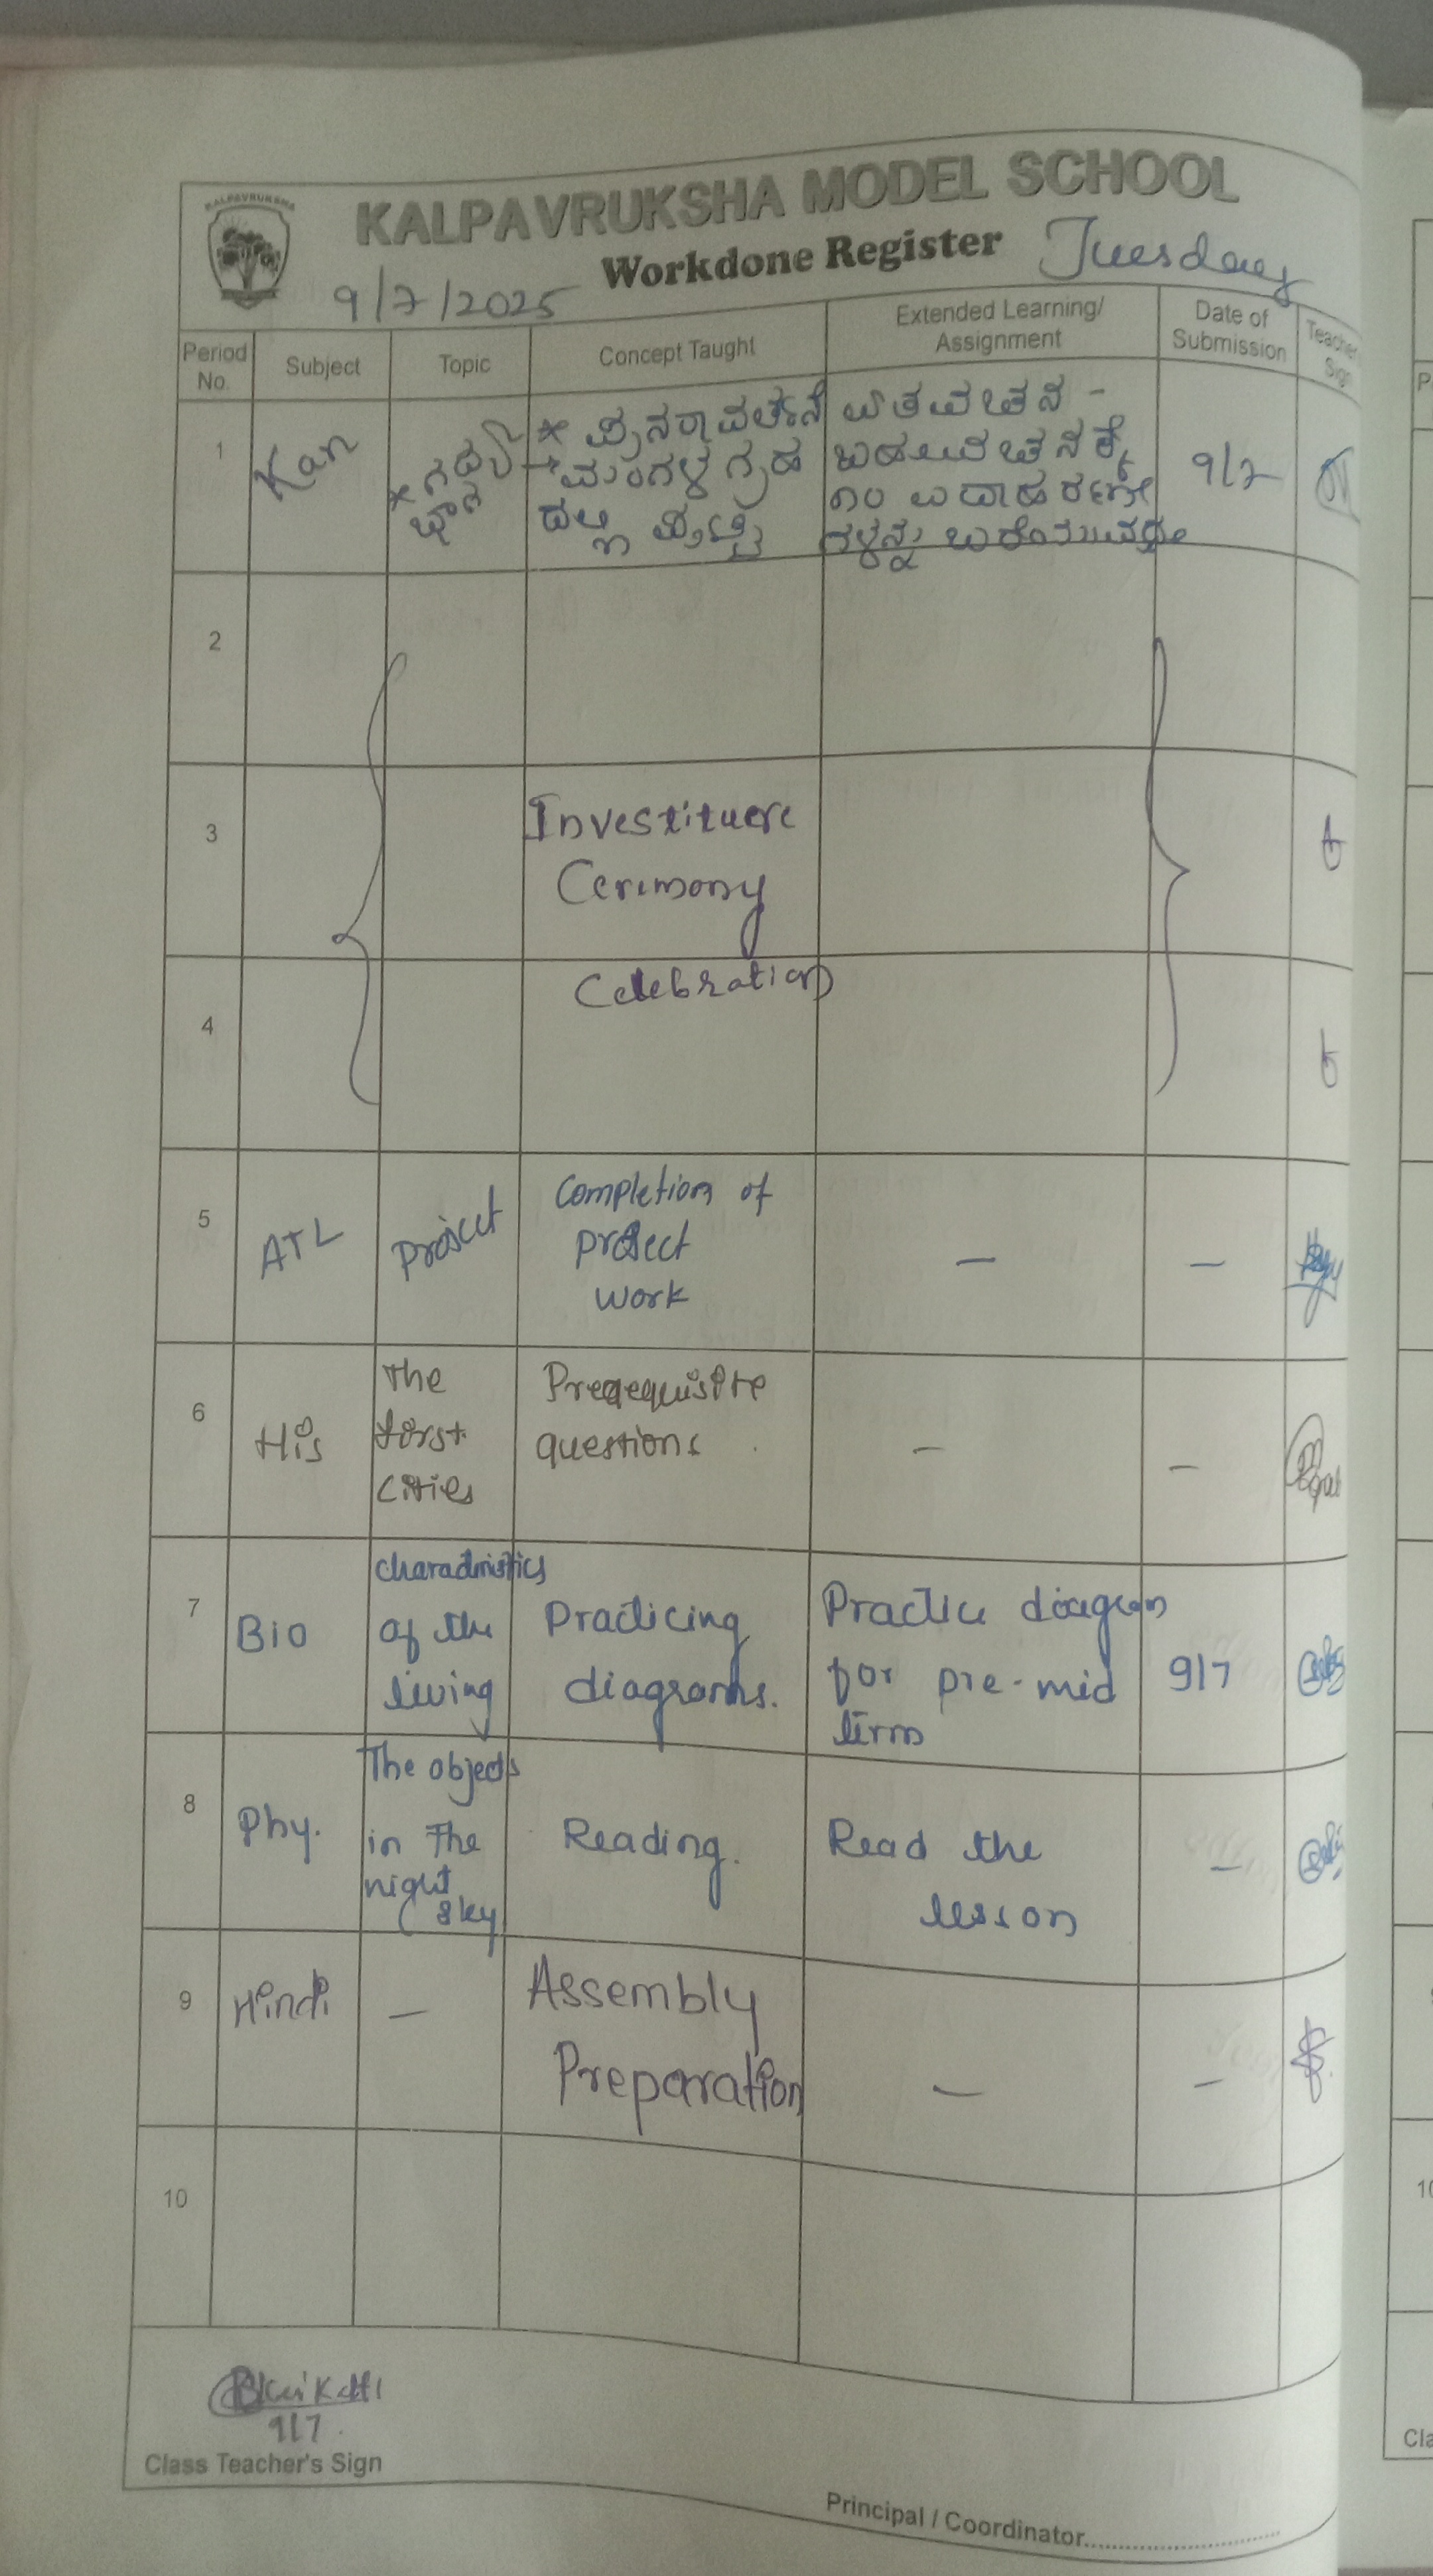 KALPAVRUKSHA
KALPAVRUKSHA MODEL SCHOOL
Workdone Register Tuesday
9/7/2025
Period No. Subject Topic Concept Taught Extended Learning/ Assignment Date of Submission Teacher Sign
1 Kan
* ಗದ್ಯ
* ಪುನರಾವರ್ತನೆ
→ ಮಂಗಳ ಗ್ರಹ
ದಲ್ಲಿ ಪುಟ್ಟಿ
ಏಕವಚನ -
ಬಹುವಚನಕ್ಕೆ
೧೦ ಉದಾಹರಣೆ
ಗಳನ್ನು ಬರೆಯುವದು
9/7
2
3
Investituere
Cerimony
4
Celebration
5 ATL Project
Completion of
project
work
— —
6 His
The
first
cities
Prerequisite
questions
— —
7 Bio
charactristics
of the
living
Practicing
diagrams.
Practice diagram
for pre-mid
term
9/7
8 Phy.
The objects
in The
night
sky
Reading.
Read the
lesson
—
9 Hindi —
Assembly
Preparation
— —
10
9/7.
Class Teacher's Sign
Principal / Coordinator